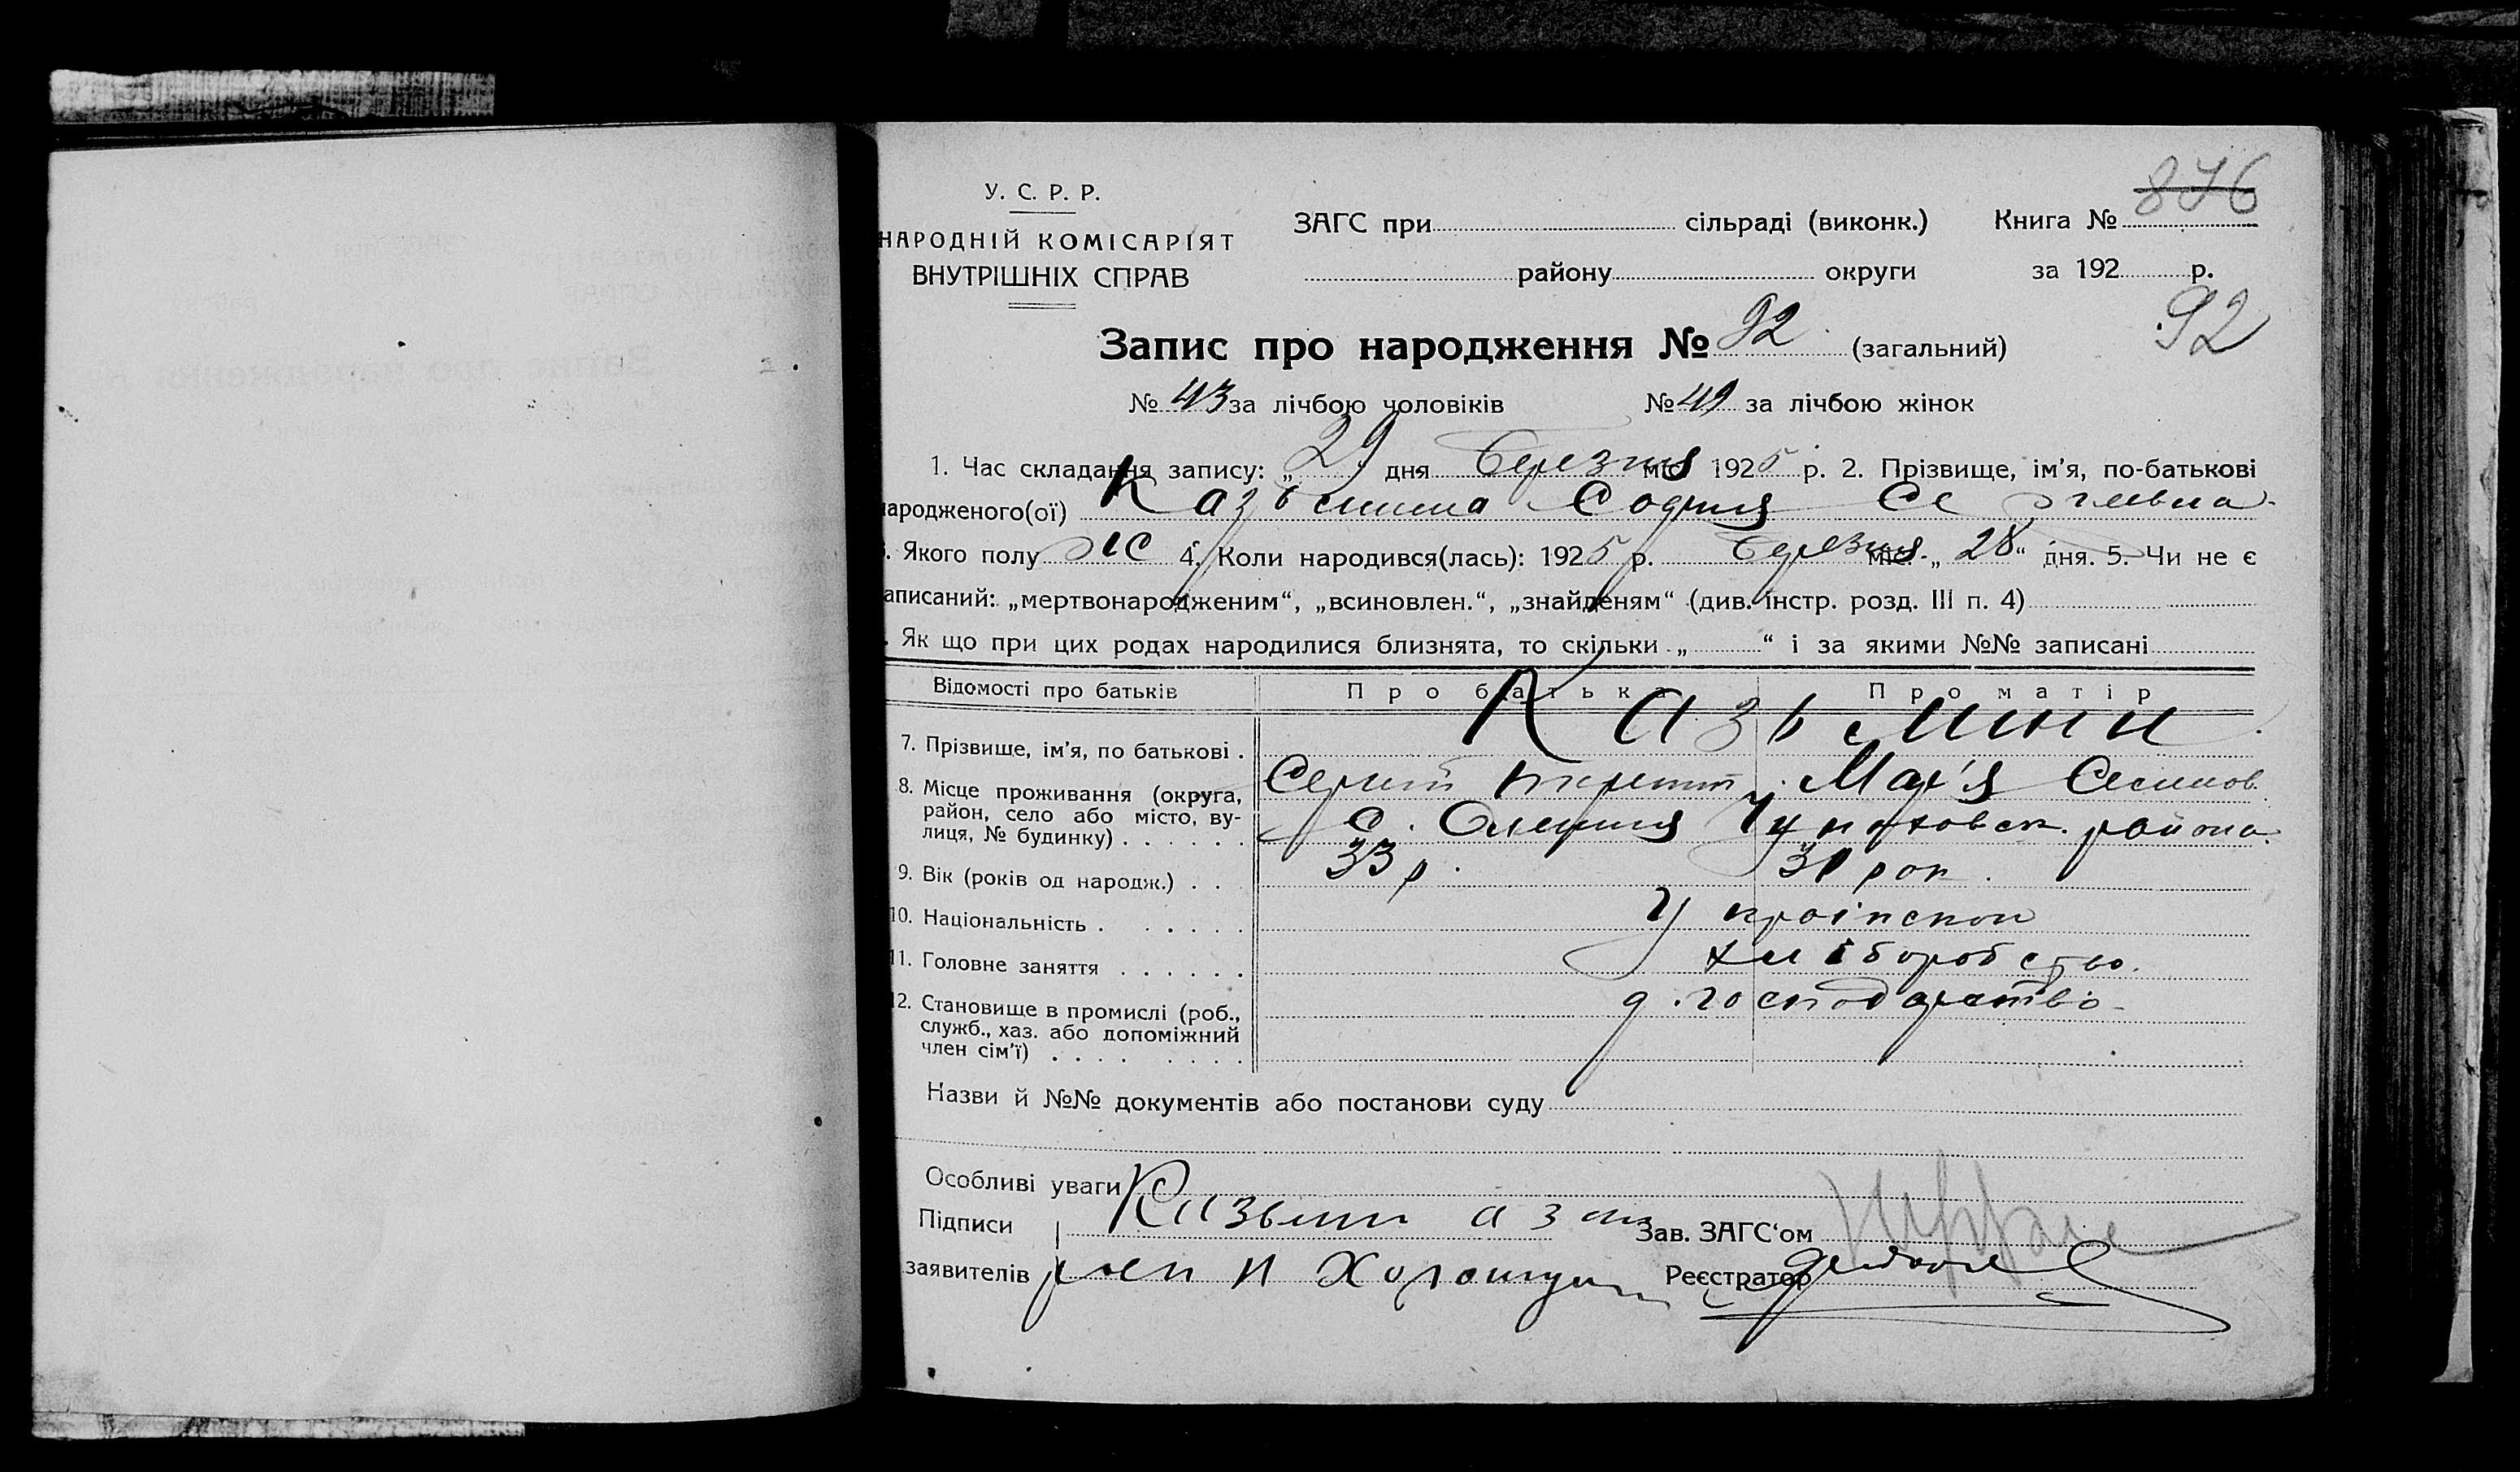 876
У. С. Р. Р.
НАРОДНІЙ КОМІСАРІЯТ
ВНУТРІШНІХ СПРАВ
ЗАГС при сільраді (виконк.) Книга №
району округи за 192 р.
92
Запис про народження № 92 (загальний)
№ 43 за лічбою чоловіків № 49 за лічбою жінок
1. Час складання запису: „29“ дня Березня міс. 1925 р. 2. Прізвище, ім’я, по-батькові
народженого(ої) Казьмина София
. Якого полу ж 4. Коли народився(лась): 1925 р. Березня міс. „28“ дня. 5. Чи не є
аписаний: „мертвонародженим“, „всиновлен.“, „знайденям“ (див. інстр. розд. III п. 4)
. Як що при цих родах народилися близнята, то скільки „ “ і за якими №№ записані
Відомості про батьків Про батька Про матір
7. Прізвише, ім’я, по батькові . Казьмини
8. Місце проживання (округа, район, село або місто, вулиця, № будинку) . . . . . . Сергий Мар'я
С. района
9. Вік (років од народж.) . . . 33 р. 31 рок.
10. Національність . . . . . . Україн
11. Головне заняття . . . . . . хліборобство.
12. Становище в промислі (роб., служб., хаз. або допоміжний член сім’ї) . . . . . . . . господарство
Назви й №№ документів або постанови суду
Особливі уваги
Підписи Казьмин Зав. ЗАГС‘ом
заявителів Реєстратор